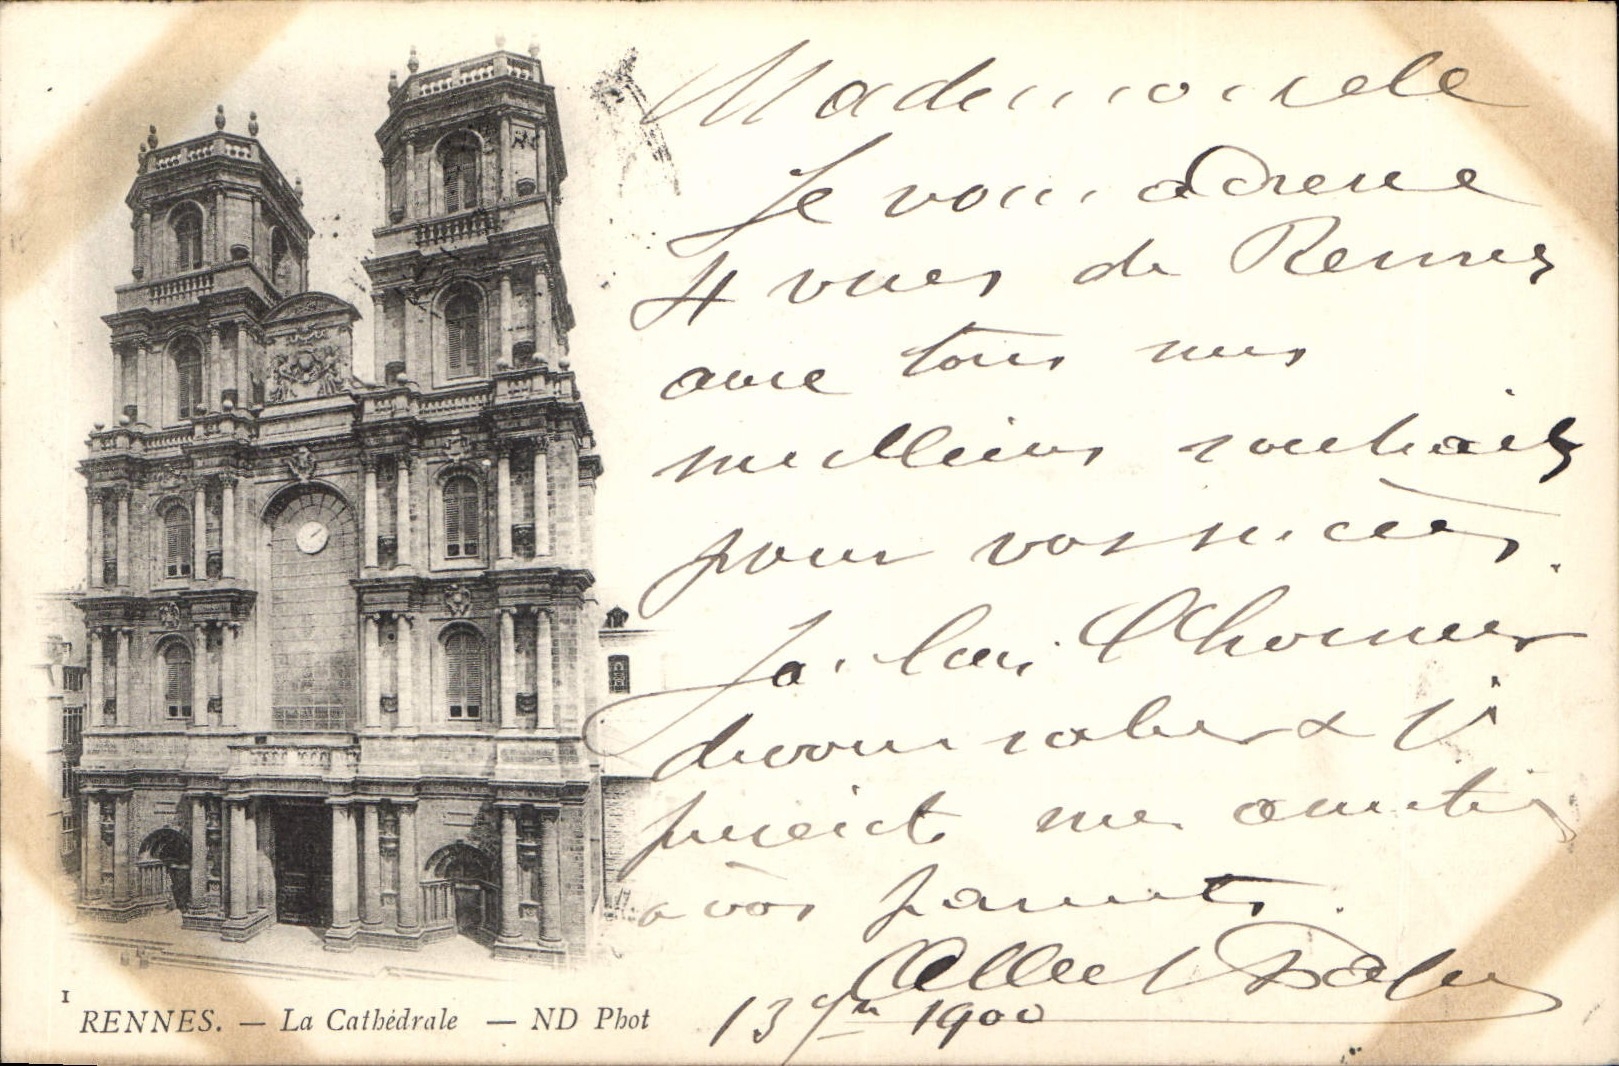 Mademoiselle
Je vous adresse
4 vues de Rennes
avec tous mes
meilleurs souhaits
pour vos succès.
J'ai l'honneur
de vous saluer &
présente mes amitiés
à vos parents.
Albert
13 1900
1
RENNES. — La Cathédrale — ND Phot